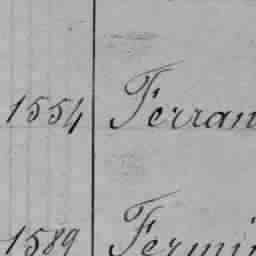 1554 Ferran
1589 Fermin